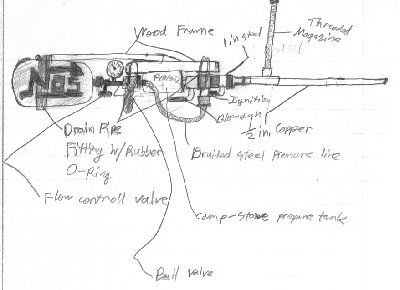 Wood Frame
1 in steel
Threaded
Magazine
NOS
Propane
Ignition
Blowgun
1/2 in. Copper
Drain Pipe
Fitting w/Rubber
O-Ring
Braided steel pressure line
Flow controll valve
camp-stove propane tank
Ball valve